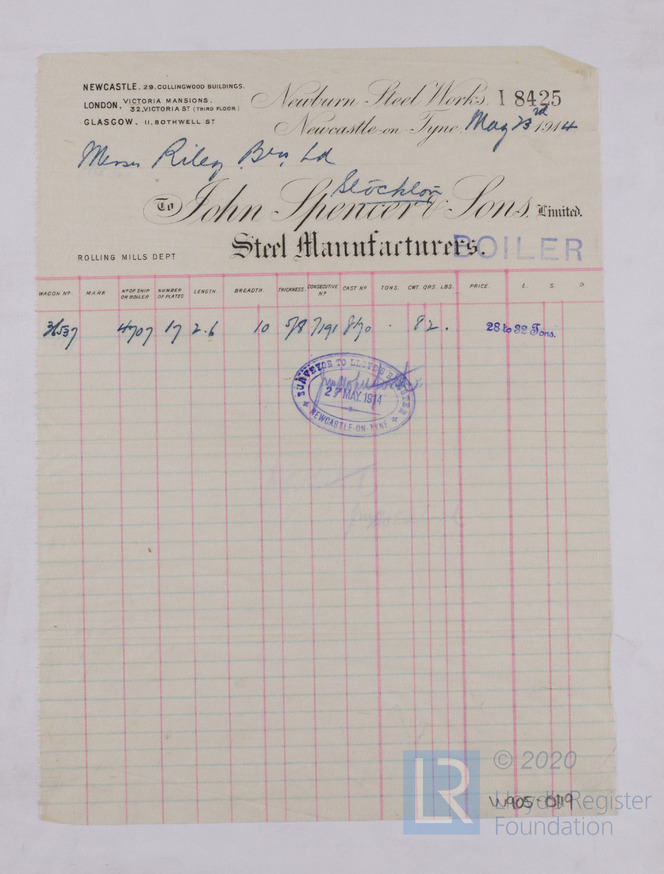 NEWCASTLE. 29. COLLINGWOOD BUILDINGS.
LONDON. VICTORIA MANSIONS.
32, VICTORIA ST (THIRD FLOOR)
GLASGOW. 11, BOTHWELL ST
Newburn Steel Works. I 8425
Newcastle-on-Tyne. May 23rd 1914
Messrs Riley Bros Ld
Stockton
To John Spencer & Sons, Limited.
Steel Manufacturers.
BOILER
ROLLING MILLS DEPT
WAGON No. MARK No OF SHIP OR BOILER NUMBER OF PLATES LENGTH. BREADTH. THICKNESS. CONSECUTIVE No CAST No TONS. CWT. QRS. LBS. PRICE. £. S. D
4707 17 2.6 10 5/8 7191 . 28 to 32 Tons.
SURVEYOR TO LLOYD'S REGISTER
27 MAY. 1914
NEWCASTLE-ON-TYNE
© 2020
LR Lloyd's Register
Foundation
W905-0119